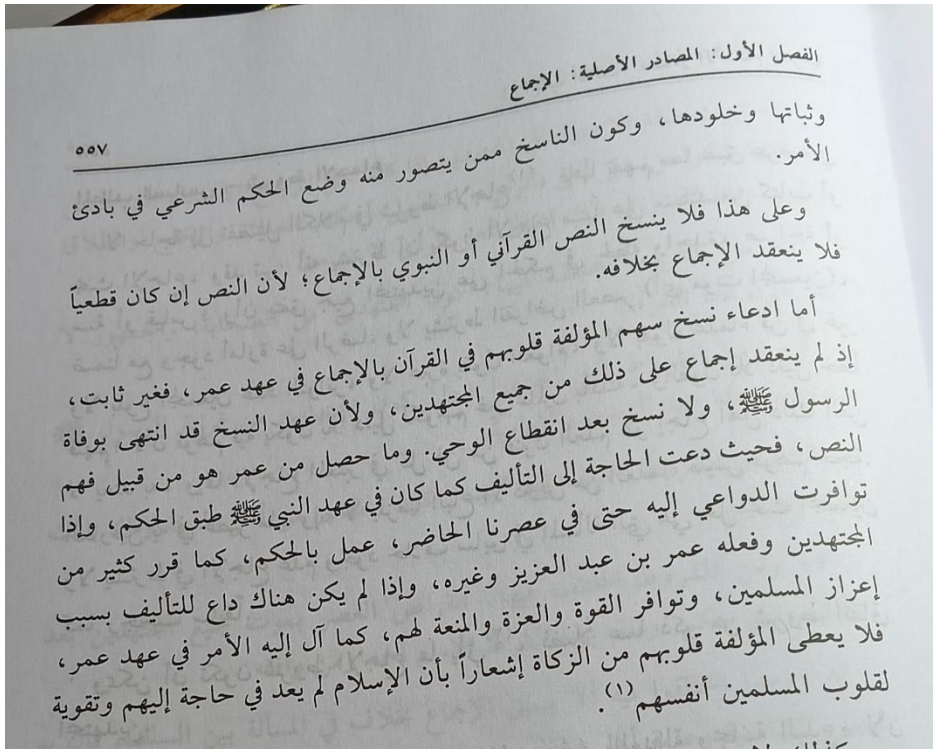 الفصل الأول: المصادر الأصلية: الإجماع
٥٥٧
وثباتها وخلودها، وكون الناسخ ممن يتصور منه وضع الحكم الشرعي في بادئ
الأمر.
وعلى هذا فلا ينسخ النص القرآني أو النبوي بالإجماع؛ لأن النص إن كان قطعياً
فلا ينعقد الإجماع بخلافه.
أما ادعاء نسخ سهم المؤلفة قلوبهم في القرآن بالإجماع في عهد عمر، فغير ثابت،
إذ لم ينعقد إجماع على ذلك من جميع المجتهدين، ولأن عهد النسخ قد انتهى بوفاة
الرسول ﷺ، ولا نسخ بعد انقطاع الوحي. وما حصل من عمر هو من قبيل فهم
النص، فحيث دعت الحاجة إلى التأليف كما كان في عهد النبي ﷺ طبق الحكم، وإذا
توافرت الدواعي إليه حتى في عصرنا الحاضر، عمل بالحكم، كما قرر كثير من
المجتهدين وفعله عمر بن عبد العزيز وغيره، وإذا لم يكن هناك داع للتأليف بسبب
إعزاز المسلمين، وتوافر القوة والعزة والمنعة لهم، كما آل إليه الأمر في عهد عمر،
فلا يعطى المؤلفة قلوبهم من الزكاة إشعاراً بأن الإسلام لم يعد في حاجة إليهم وتقوية
لقلوب المسلمين أنفسهم (١).